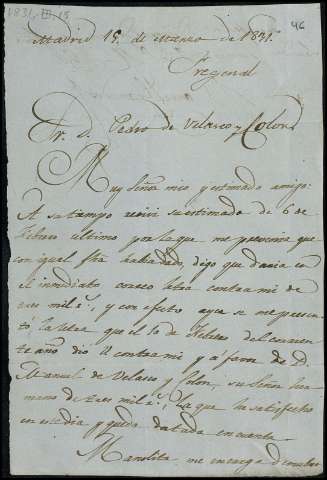 1831, III, 15
46
Madrid 15 de Marzo de 1831.
Fregenal
Sr. D. Pedro de Velasco y Colon
Muy Señor mio y estimado amigo:
A su tiempo recivi su estimado de 6 de
Febrero ultimo por la que me prevenia que
con igual fha habia dado, digo que daria en
el inmediato correo letra contra mi de
tres mil rs, y con efecto ayer se me presen
tó, la letra que el 10 de Febrero del corrien
te año dió V. contra mi y á favor de D.
Manuel de Velasco y Colon, su Señor her
mano de tres mil rs, la que he satisfecho
en este dia y queda datada en cuenta.
Manolita me encarga